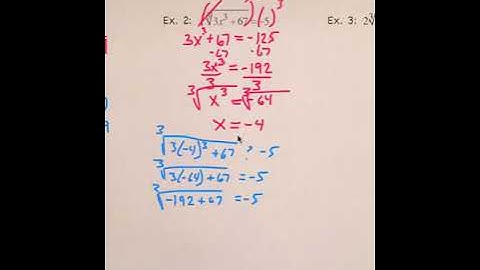 Ex. 2: (∛3x³+67)³=(-5)³ Ex. 3: 2∛
3x³+67=-125
-67 -67
3x³=-192
3 3
∛x³=∛-64
x=-4
∛3(-4)³+67 ? -5
∛3(-64)+67 =-5
∛-192+67 =-5